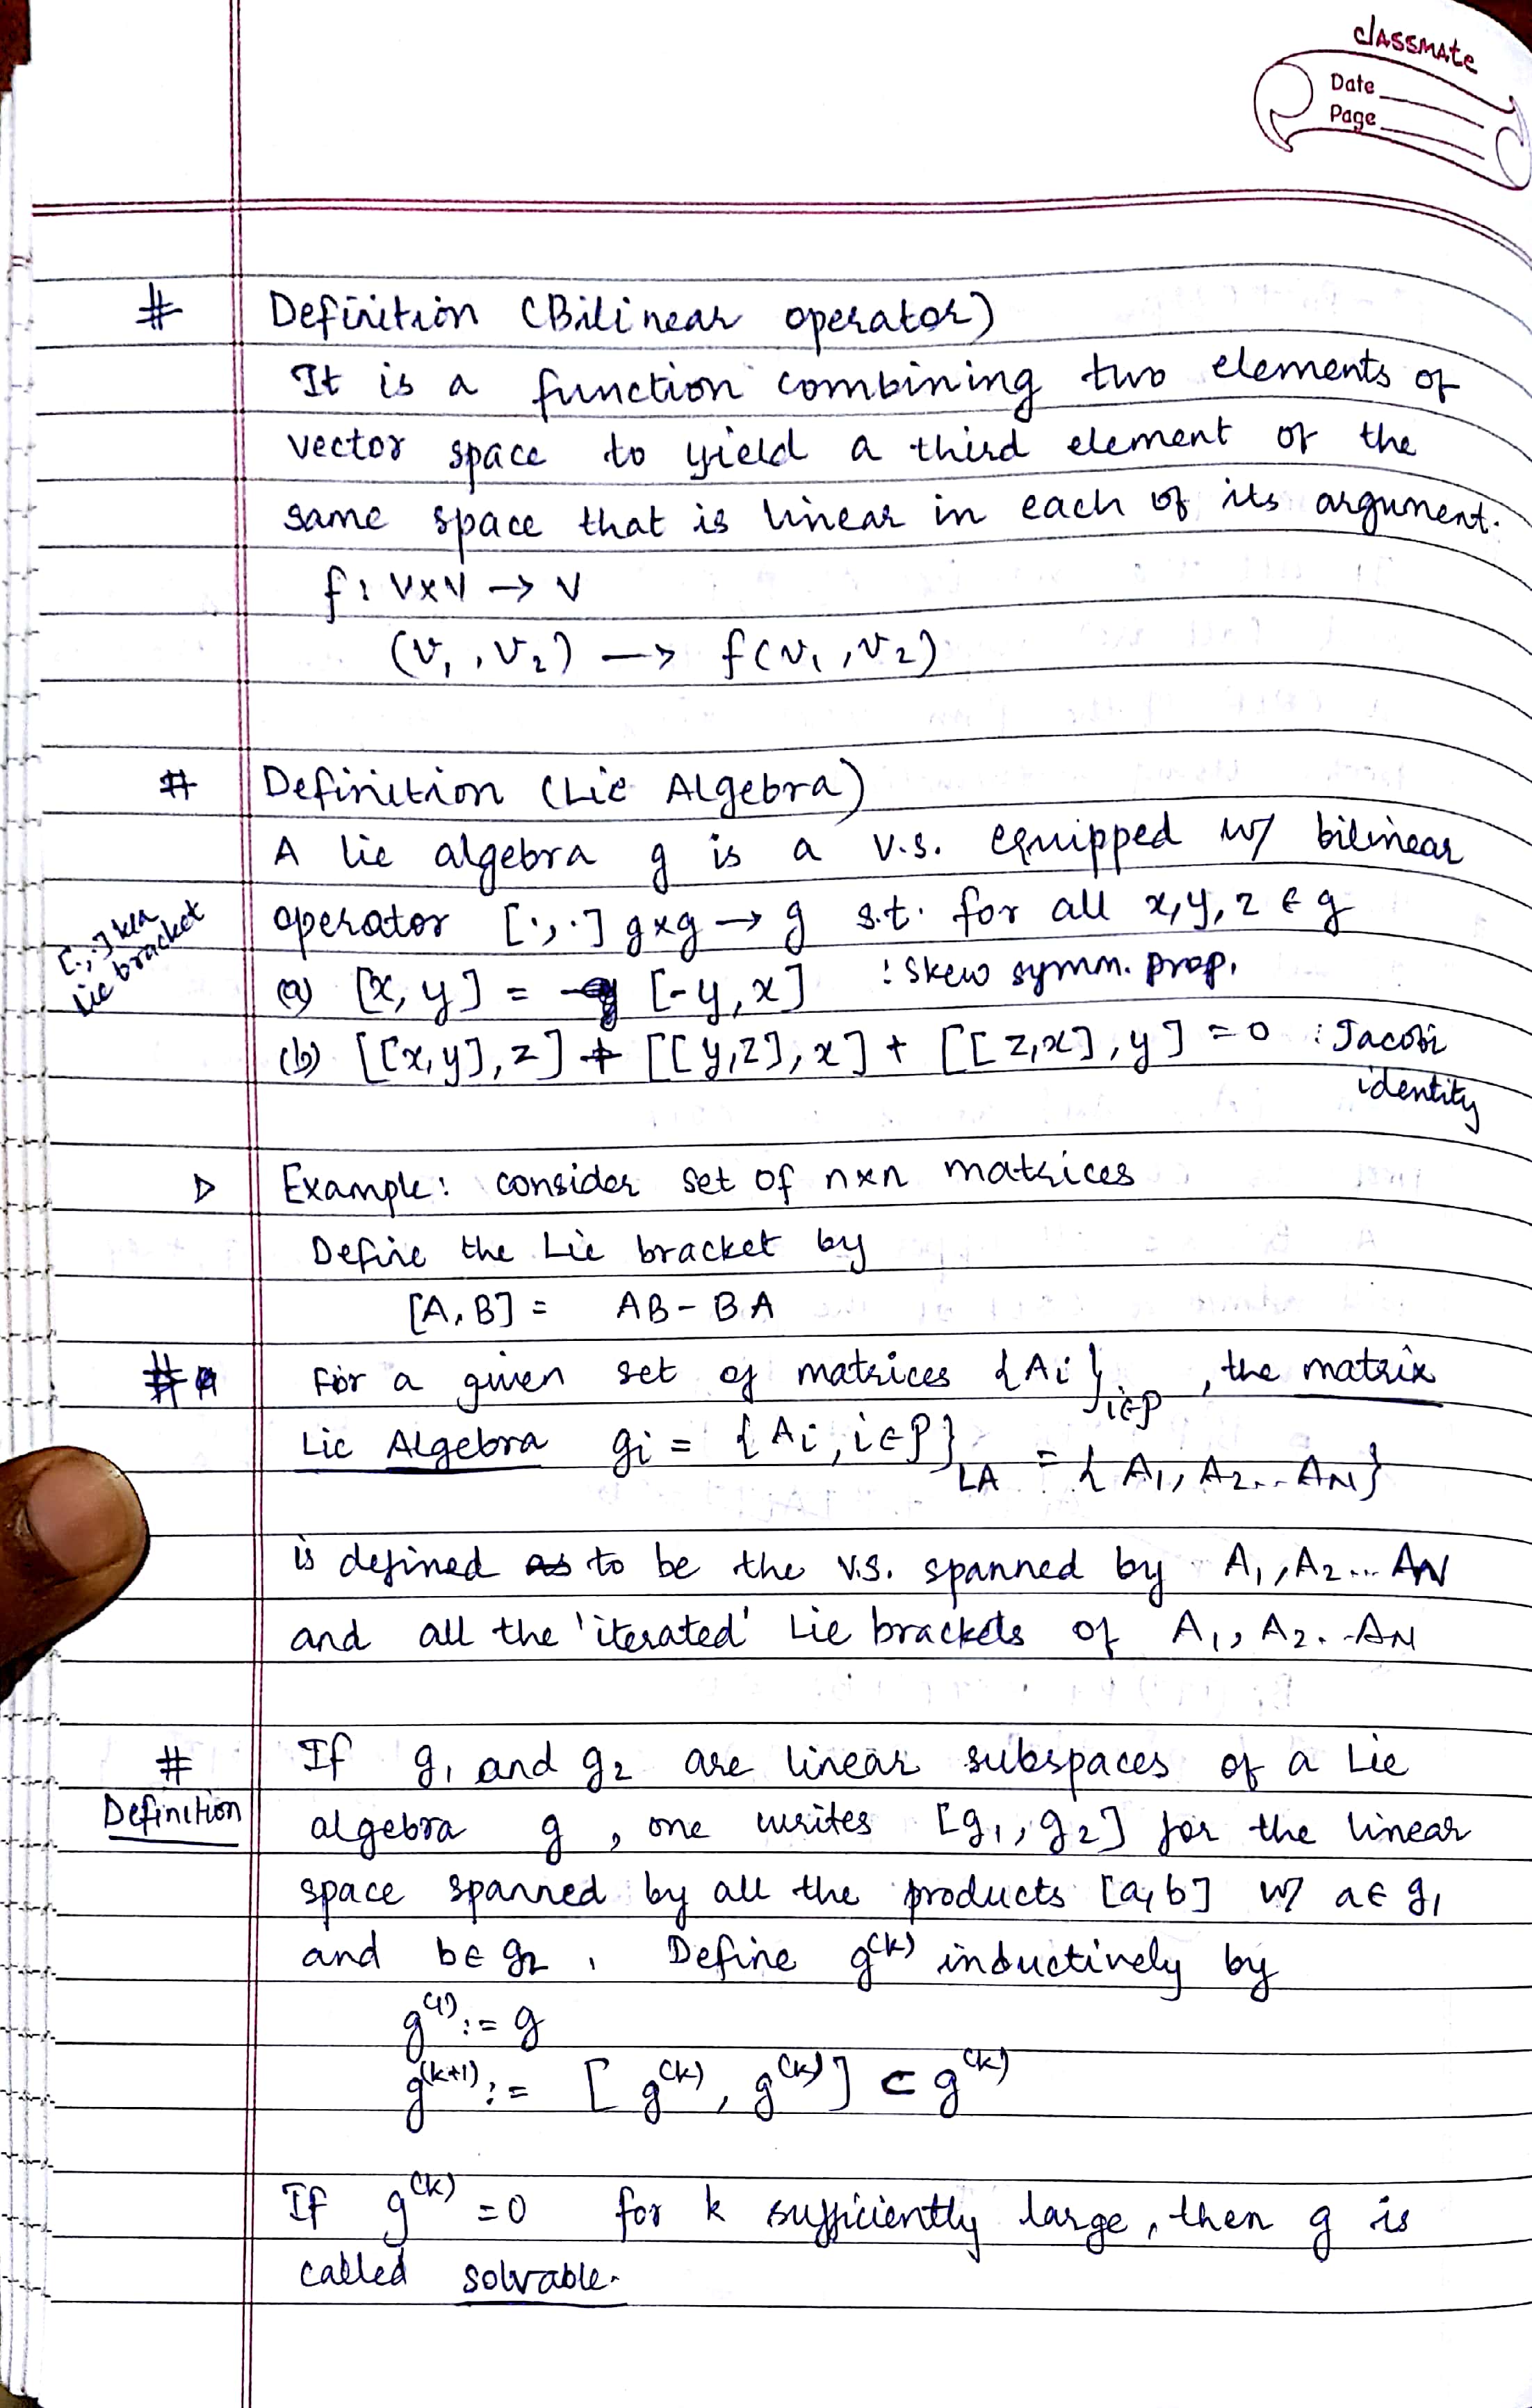 classmate
Date
Page
# Definition (Bilinear operator)
It is a function combining two elements of
vector space to yield a third element of the
same space that is linear in each of its argument.
f : V×V → V
(v₁, v₂) → f(v₁, v₂)
# Definition (Lie Algebra)
A lie algebra g is a v.s. equipped w/ bilinear
operator [·,·] g×g → g s.t. for all x, y, z ∈ g
[·,·] kla
Lie bracket
(a) [x, y] = [-y, x] : skew symm. prop.
(b) [[x,y], z] + [[y,z], x] + [[z,x], y] = 0 : Jacobi
identity
▷ Example: consider set of n×n matrices
Define the Lie bracket by
[A, B] = AB - BA
# For a given set of matrices {Ai}i∈P, the matrix
Lie Algebra gi = {Ai, i∈P}LA = {A₁, A₂... AN}
is defined as to be the v.s. spanned by A₁, A₂... AN
and all the 'iterated' Lie brackets of A₁, A₂..AN
# If g₁ and g₂ are linear subspaces of a Lie
Definition
algebra g, one writes [g₁, g₂] for the linear
space spanned by all the products [a, b] w/ a∈ g₁
and b∈ g₂. Define g⁽ᵏ⁾ inductively by
g⁽¹⁾ := g
g⁽ᵏ⁺¹⁾ := [g⁽ᵏ⁾, g⁽ᵏ⁾] ⊂ g⁽ᵏ⁾
If g⁽ᵏ⁾ = 0 for k sufficiently large, then g is
called solvable.